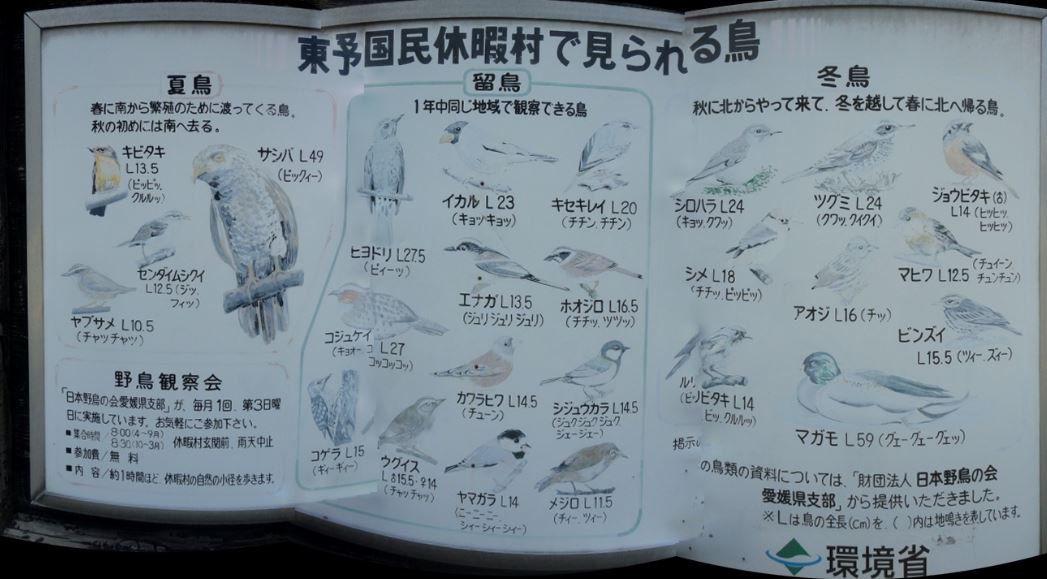 東予国民休暇村で見られる鳥
夏鳥
春に南から繁殖のために渡ってくる鳥。
秋の初めには南へ去る。
キビタキ
L13.5
(ピッピッ,
クルルッ)
サシバ L49
(ピックィー)
センダイムシクイ
L12.5(ジッ,
フィッ)
ヤブサメ L10.5
(チャッチャッ)
野鳥観察会
「日本野鳥の会愛媛県支部」が、毎月1回、第3日曜
日に実施しています。お気軽にご参加下さい。
■集合時間/8:00(4〜9月)
8:30(10〜3月) 休暇村玄関前、雨天中止
■参加費/無 料
■内 容/約1時間ほど、休暇村の自然の小径を歩きます。
留鳥
1年中同じ地域で観察できる鳥
ヒヨドリ L27.5
(ピィーッ)
イカル L23
(キョッキョッ)
キセキレイ L20
(チチン,チチン)
エナガ L13.5
(ジュリジュリジュリ)
ホオジロ L16.5
(チチッ,ツツッ)
コジュケイ
L27
コッコッコッ)
カワラヒワ L14.5
(チューン)
シジュウカラ L14.5
(ジュクジュクジュク,
ジェージェー)
コゲラ L15
(ギィーギィー)
ウグイス
L♂15.5・♀14
(チャッチャッ)
ヤマガラ L14
(ニーニーニー,
シィーシィーシィー)
メジロ L11.5
(チィー,ツィー)
冬鳥
秋に北からやって来て、冬を越して春に北へ帰る鳥。
シロハラ L24
(キョッ,クワッ)
ツグミ L24
(クワッ,クイクイ)
ジョウビタキ(♂)
L14(ヒッヒッ,
ヒッヒッ)
シメ L18
(チチッ,ピッピッ)
アオジ L16(チッ)
マヒワ L12.5
(チュイーン,
チュンチュン)
ビンズイ
L15.5(ツィー,ズィー)
ビタキ L14
ピッ,クルルッ)
マガモ L59(グェーグェーグェッ)
掲示
の鳥類の資料については、「財団法人日本野鳥の会
愛媛県支部」から提供いただきました。
※Lは鳥の全長(cm)を、( )内は地鳴きを表しています。
環境省